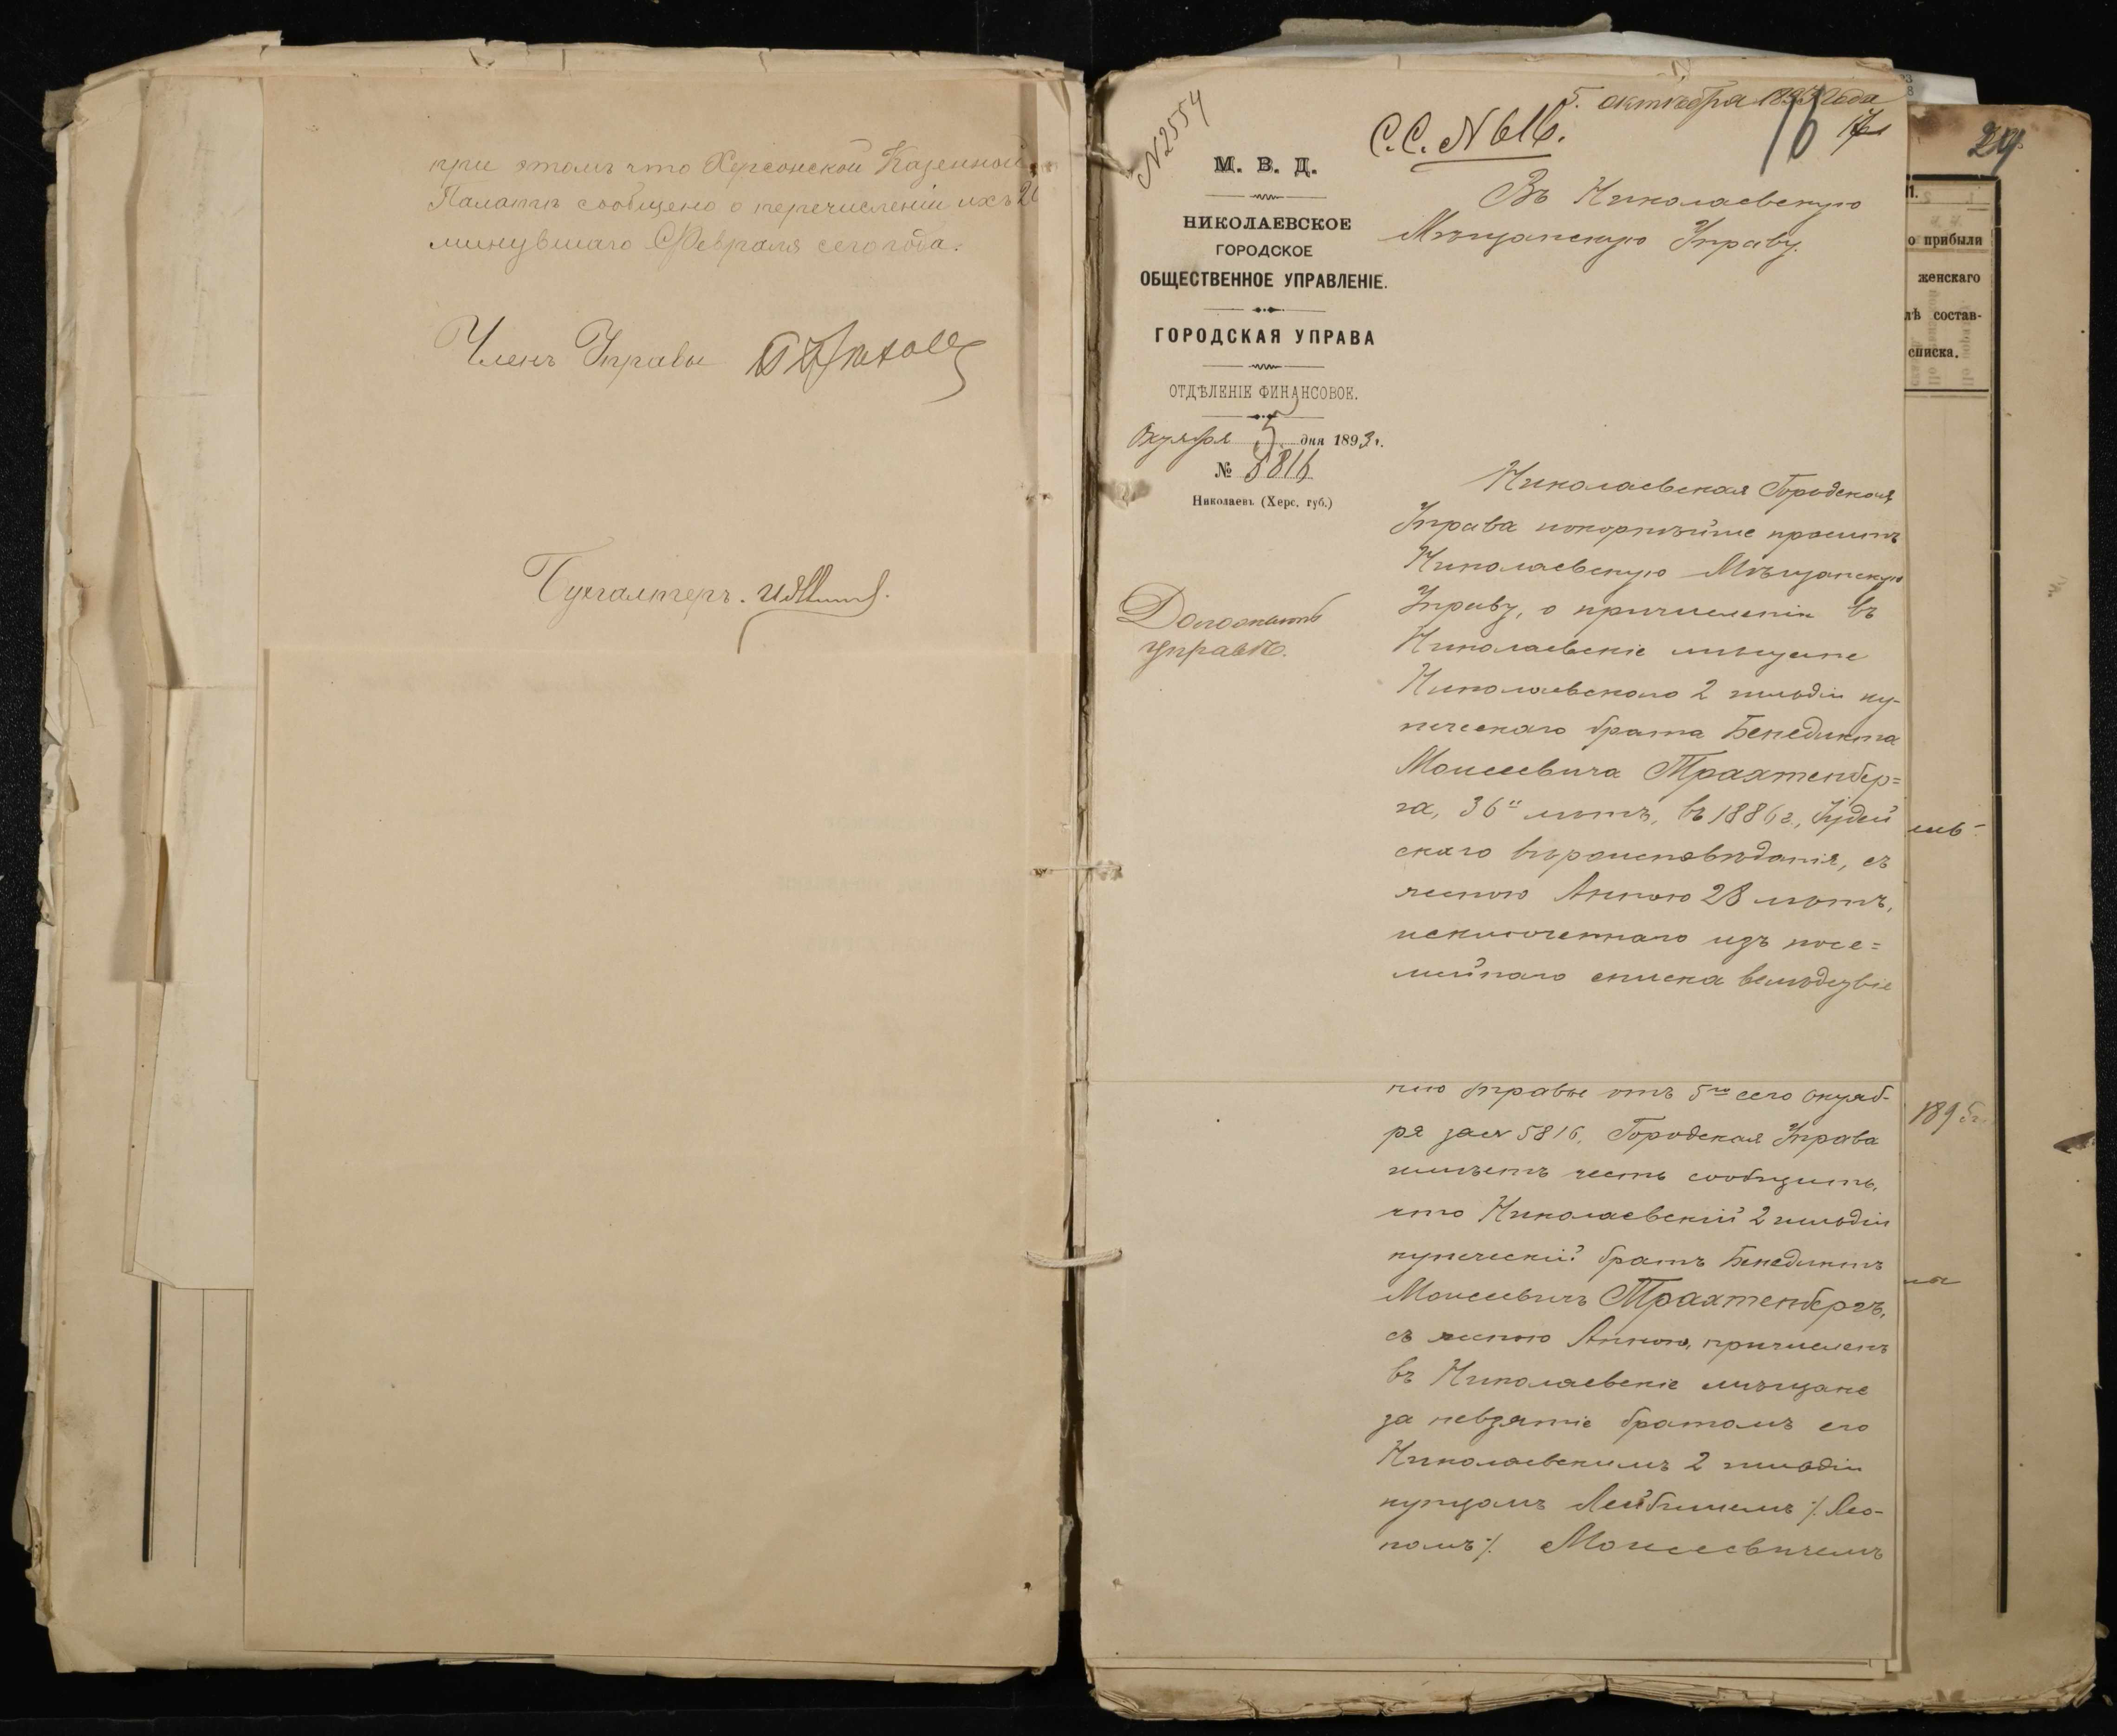 при этомъ что Херсонской Казенной
Палатѣ сообщено о перечисленіи ихъ 20
минувшаго Февраля сего года.
Членъ Управы
Бухгалтеръ.
N 2554
5. октября 1893 года
С.С. N 616.
16
М. В. Д.
НИКОЛАЕВСКОЕ
ГОРОДСКОЕ
ОБЩЕСТВЕННОЕ УПРАВЛЕНІЕ.
ГОРОДСКАЯ УПРАВА
ОТДѢЛЕНІЕ ФИНАНСОВОЕ.
Октября 5 дня 1893 г.
№ 5816
Николаевъ (Херс. губ.)
Доложить
управѣ.
Въ Николаевскую
Мѣщанскую Управу.
Николаевская Городская
Управа покорнѣйше проситъ
Николаевскую Мѣщанскую
Управу, о причисленіи въ
Николаевскіе мѣщане
Николаевскаго 2 гильдіи ку-
печескаго брата Бенедикта
Моисеевича Трахтенбер=
га, 36 лѣтъ, въ 1886 г., Іудей
скаго вѣроисповѣданія, съ
женою Анною 28 лѣтъ,
исключеннаго изъ посе=
мейнаго списка вслѣдствіе
нію Управы отъ 5го сего октяб-
ря за N 5816, Городская Управа
имѣетъ честь сообщить,
что Николаевскій 2 гильдіи
купеческій братъ Бенедиктъ
Моисеевичъ Трахтенбергъ,
съ женою Анною, причисленъ
въ Николаевскіе мѣщане
за невзятіе братомъ его
Николаевскимъ 2 гильдіи
купцомъ Лейбишемъ /. Лео-
номъ ./ Моисеевичемъ
29
о прибыли
женскаго
лѣ состав-
списка.